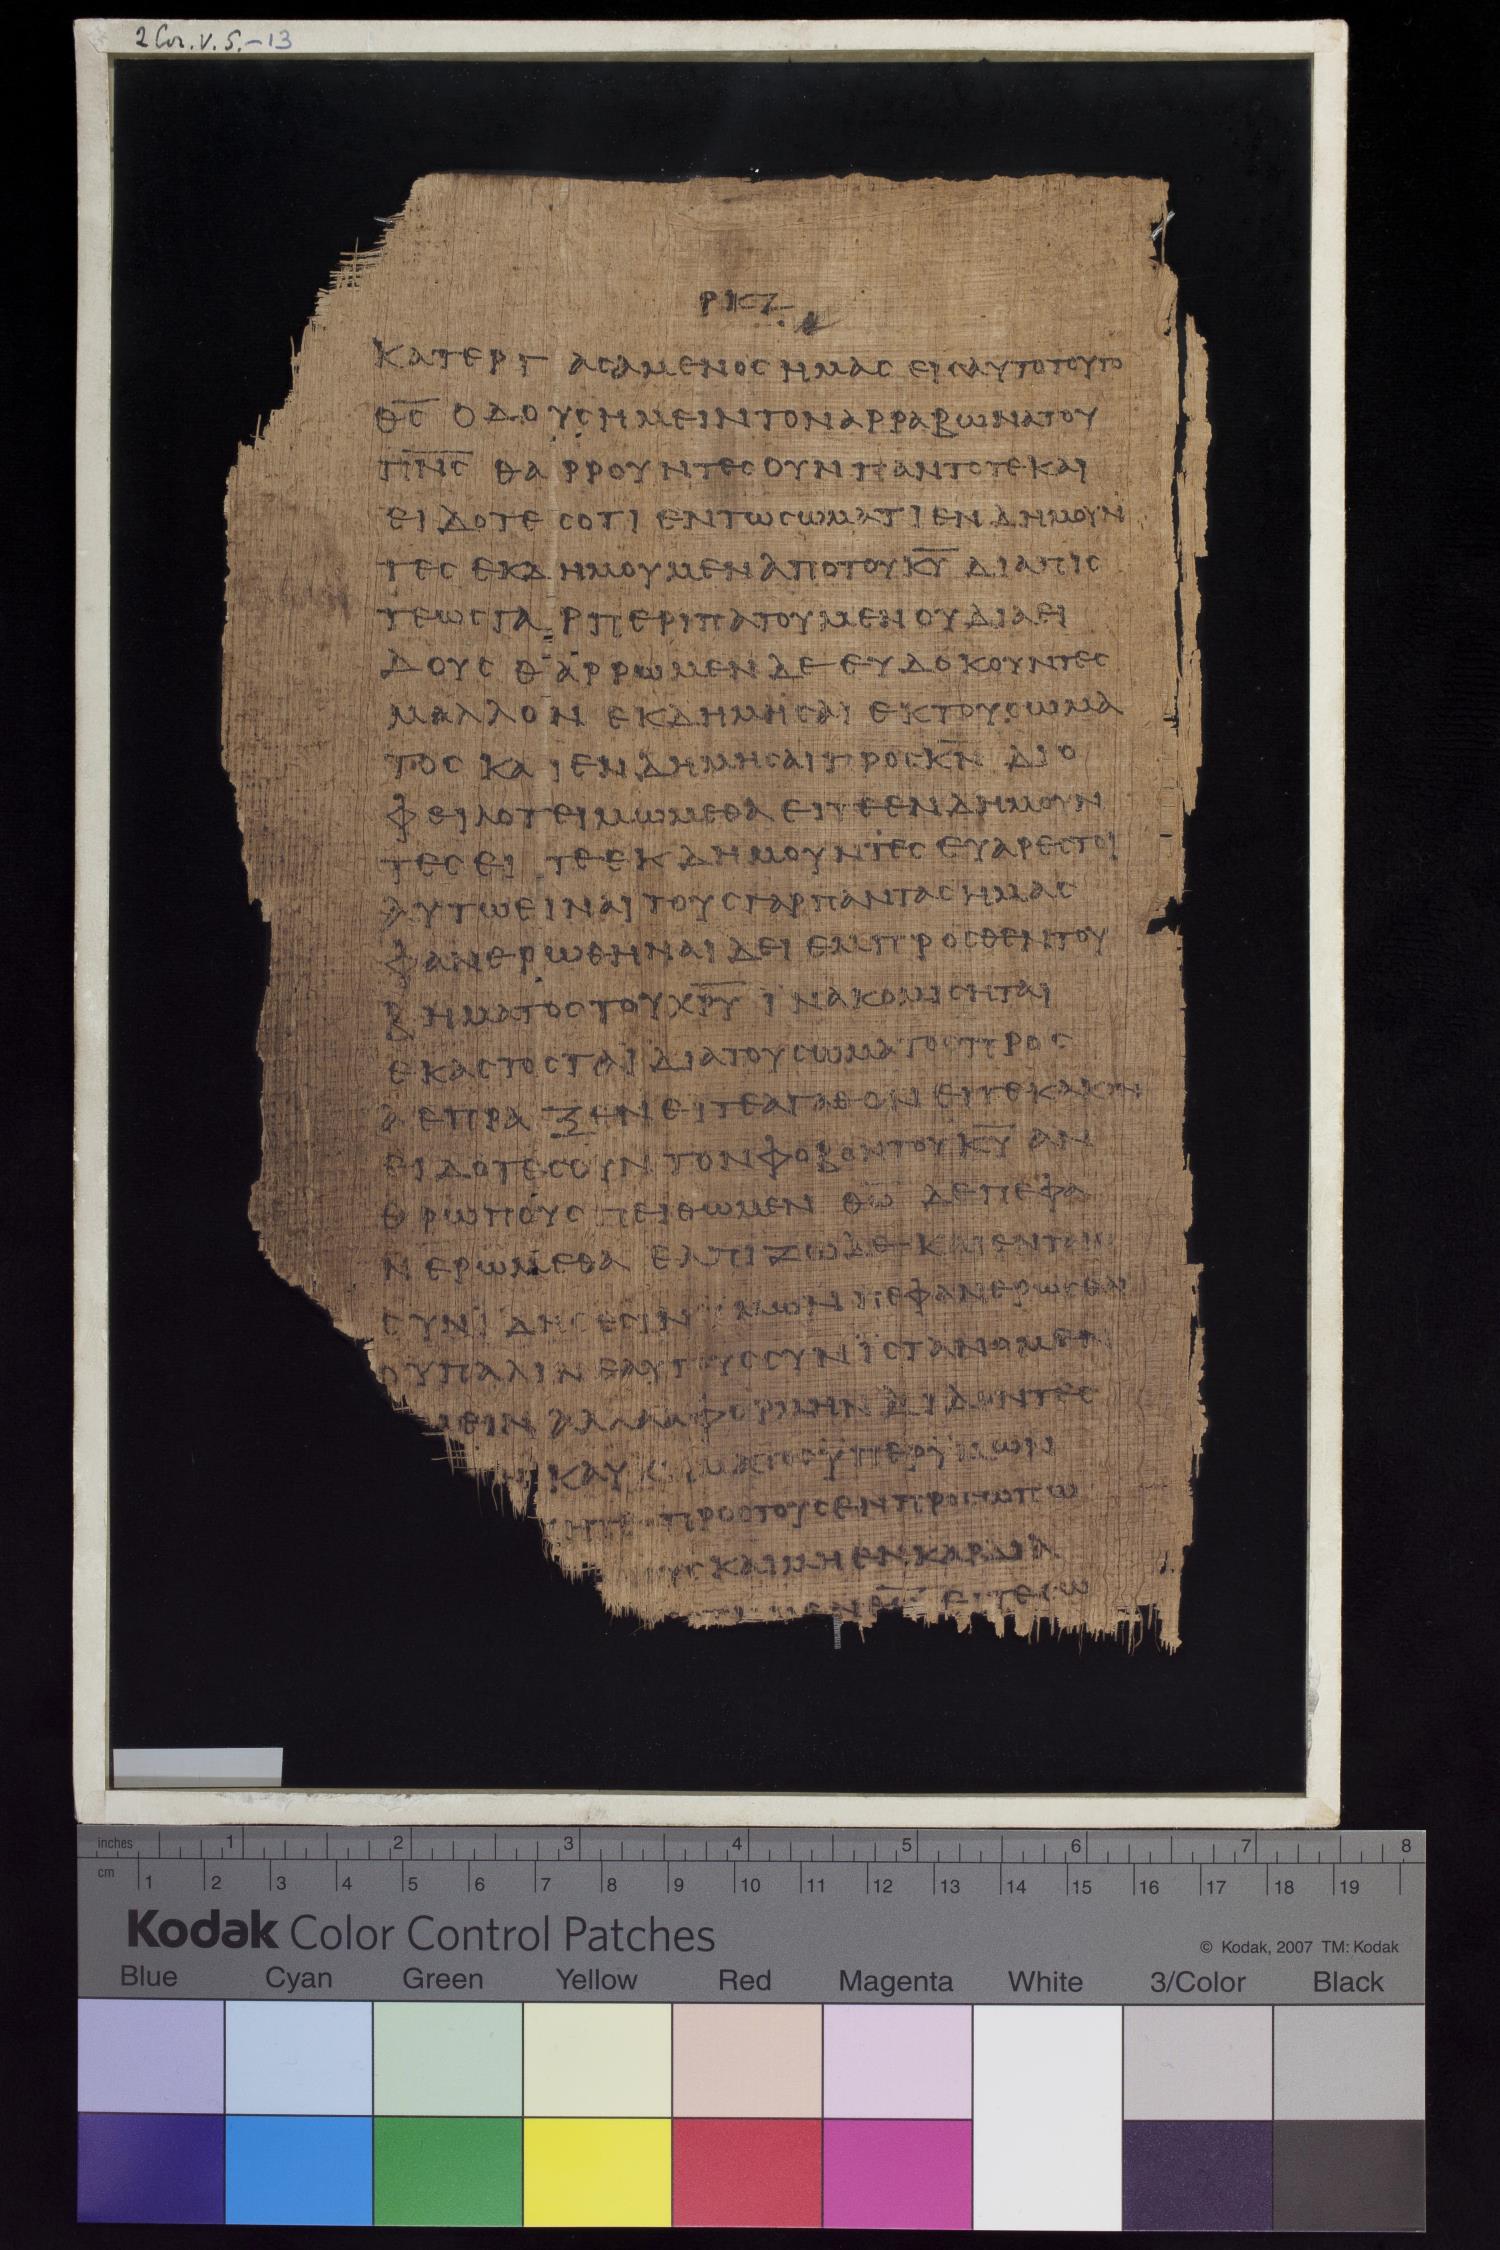 2 Cor. V. 5.-13
ΡΚΖ
ΚΑΤΕΡΓΑϹΑΜΕΝΟϹ ΗΜΑϹ ΕΙϹ ΑΥΤΟ ΤΟΥΤΟ
Θ̅Ϲ̅ Ο ΔΟΥϹ ΗΜΕΙΝ ΤΟΝ ΑΡΡΑΒΩΝΑ ΤΟΥ
Π̅Ν̅Ϲ̅ ΘΑΡΡΟΥΝΤΕϹ ΟΥΝ ΠΑΝΤΟΤΕ ΚΑΙ
ΕΙΔΟΤΕϹ ΟΤΙ ΕΝ ΤΩ ϹΩΜΑΤΙ ΕΝΔΗΜΟΥΝ
ΤΕϹ ΕΚΔΗΜΟΥΜΕΝ ΑΠΟ ΤΟΥ Κ̅Υ̅ ΔΙΑ ΠΙϹ
ΤΕΩϹ ΓΑΡ ΠΕΡΙΠΑΤΟΥΜΕΝ ΟΥ ΔΙΑ ΕΙ
ΔΟΥϹ ΘΑΡΡΩΜΕΝ ΔΕ ΕΥΔΟΚΟΥΝΤΕϹ
ΜΑΛΛΟΝ ΕΚΔΗΜΗϹΑΙ ΕΚ ΤΟΥ ϹΩΜΑ
ΤΟϹ ΚΑΙ ΕΝΔΗΜΗϹΑΙ ΠΡΟϹ Κ̅Ν̅ ΔΙΟ
ΦΕΙΛΟΤΕΙΜΩΜΕΘΑ ΕΙΤΕ ΕΝΔΗΜΟΥΝ
ΤΕϹ ΕΙΤΕ ΕΚΔΗΜΟΥΝΤΕϹ ΕΥΑΡΕϹΤΟΙ
ΑΥΤΩ ΕΙΝΑΙ ΤΟΥϹ ΓΑΡ ΠΑΝΤΑϹ ΗΜΑϹ
ΦΑΝΕΡΩΘΗΝΑΙ ΔΕΙ ΕΜΠΡΟϹΘΕΝ ΤΟΥ
ΒΗΜΑΤΟϹ ΤΟΥ Χ̅Ρ̅Υ̅ ΙΝΑ ΚΟΜΙϹΗΤΑΙ
ΕΚΑϹΤΟϹ ΤΑ ΙΔΙΑ ΤΟΥ ϹΩΜΑΤΟϹ ΠΡΟϹ
Α ΕΠΡΑΞΕΝ ΕΙΤΕ ΑΓΑΘΟΝ ΕΙΤΕ ΚΑΚΟΝ
ΕΙΔΟΤΕϹ ΟΥΝ ΤΟΝ ΦΟΒΟΝ ΤΟΥ Κ̅Υ̅ ΑΝ
ΘΡΩΠΟΥϹ ΠΕΙΘΩΜΕΝ Θ̅Ω̅ ΔΕ ΠΕΦΑ
ΝΕΡΩΜΕΘΑ ΕΛΠΙΖΩ ΔΕ ΚΑΙ ΕΝ
ϹΥΝΙΔΗϹΕϹΙΝ ΠΕΦΑΝΕΡΩϹΘΑΙ
ΟΥ ΠΑΛΙΝ ΕΑΥΤΟΥϹ ϹΥΝΙϹΤΑΝΟΜΕΝ
ΑΛΛΑ ΑΦΟΡΜΗΝ ΔΙΔΟΝΤΕϹ
ΥΠΕΡ
ΠΡΟϹ ΤΟΥϹ ΕΝ ΠΡΟϹΩΠΩ
ΚΑΙ ΜΗ ΕΝ ΚΑΡΔΙΑ
ΕΙΤΕ ϹΩ
inches 1 2 3 4 5 6 7 8
cm 1 2 3 4 5 6 7 8 9 10 11 12 13 14 15 16 17 18 19
Kodak Color Control Patches
© Kodak, 2007 TM: Kodak
Blue Cyan Green Yellow Red Magenta White 3/Color Black